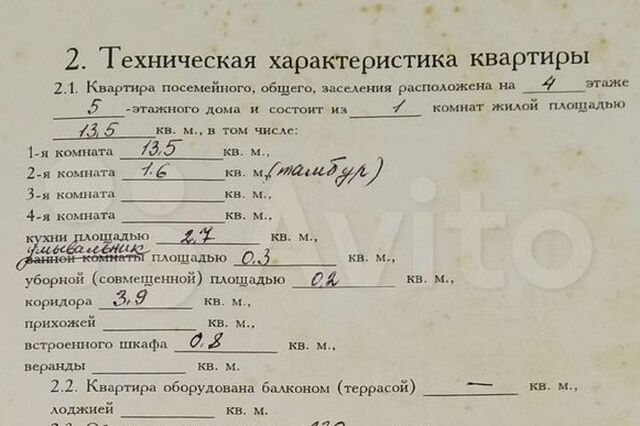 2. Техническая характеристика квартиры
2.1. Квартира посемейного, общего, заселения расположена на 4 этаже
5 -этажного дома и состоит из 1 комнат жилой площадью
13,5 кв. м., в том числе:
1-я комната 13,5 кв. м.,
2-я комната 1.6 кв. м. (тамбур)
3-я комната кв. м.,
4-я комната кв. м.,
кухни площадью 2,7 кв. м.,
умывальник
ванной комнаты площадью 0.3 кв. м.,
уборной (совмещенной) площадью 0.2 кв. м.,
коридора 3,9 кв. м.,
прихожей кв. м.,
встроенного шкафа 0,8 кв. м.,
веранды кв. м.
2.2. Квартира оборудована балконом (террасой) — кв. м.,
лоджией кв. м.
Avito